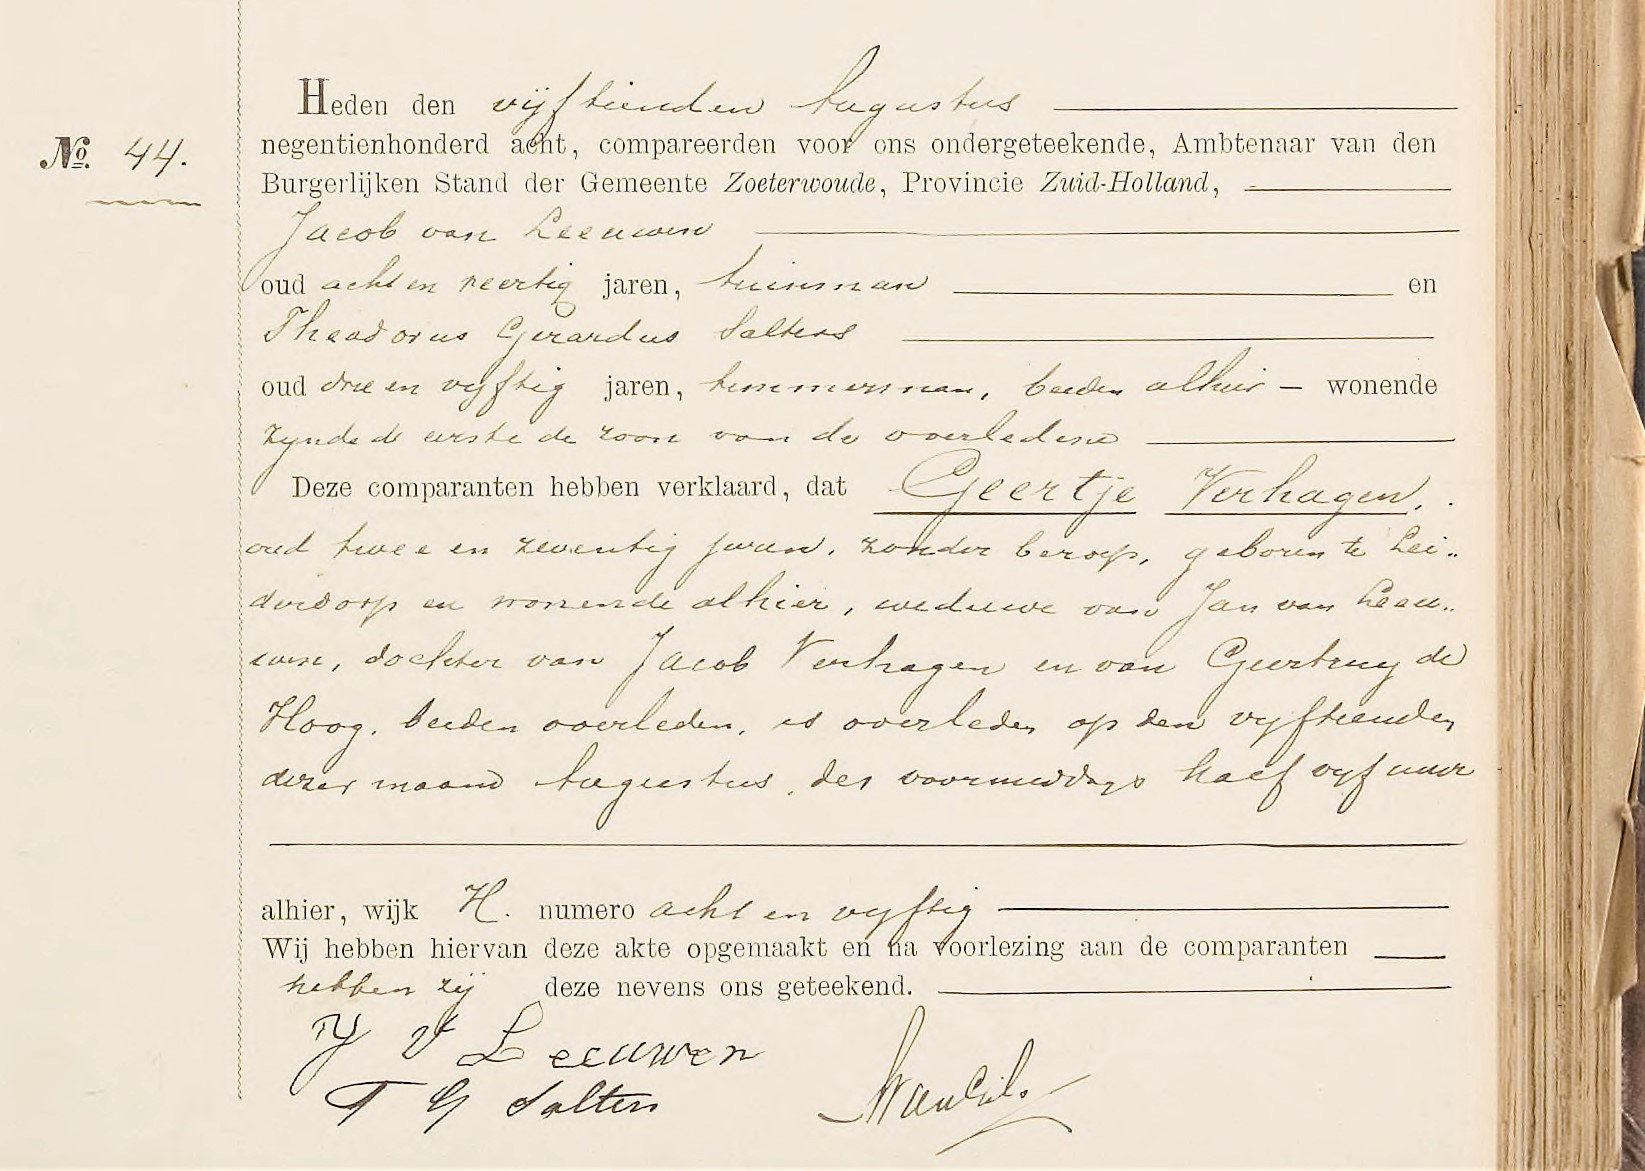 Heden den vijftienden Augustus
negentienhonderd acht, compareerden voor ons ondergeteekende, Ambtenaar van den
No. 44.
Burgerlijken Stand der Gemeente Zoeterwoude, Provincie Zuid-Holland,
Jacob van Leeuwen
oud acht en veertig jaren, tuinman en
Theodorus Gerardus Salters
oud drie en vyftig jaren, timmerman, beiden alhier — wonende
zynde de eerste de zoon van de overledene
Deze comparanten hebben verklaard, dat Geertje Verhagen,
oud twee en zeventig jaren, zonder beroep, geboren te Lei-
derdorp en wonende alhier, weduwe van Jan van Leeu-
wen, dochter van Jacob Verhagen en van Geertruy de
Hoog, beiden overleden, is overleden op den vyftienden
dezer maand Augustus, des voormiddags half vyf uur
alhier, wijk H. numero acht en vyftig
Wij hebben hiervan deze akte opgemaakt en na voorlezing aan de comparanten
hebben zij deze nevens ons geteekend.
J V Leeuwen
T G Salters